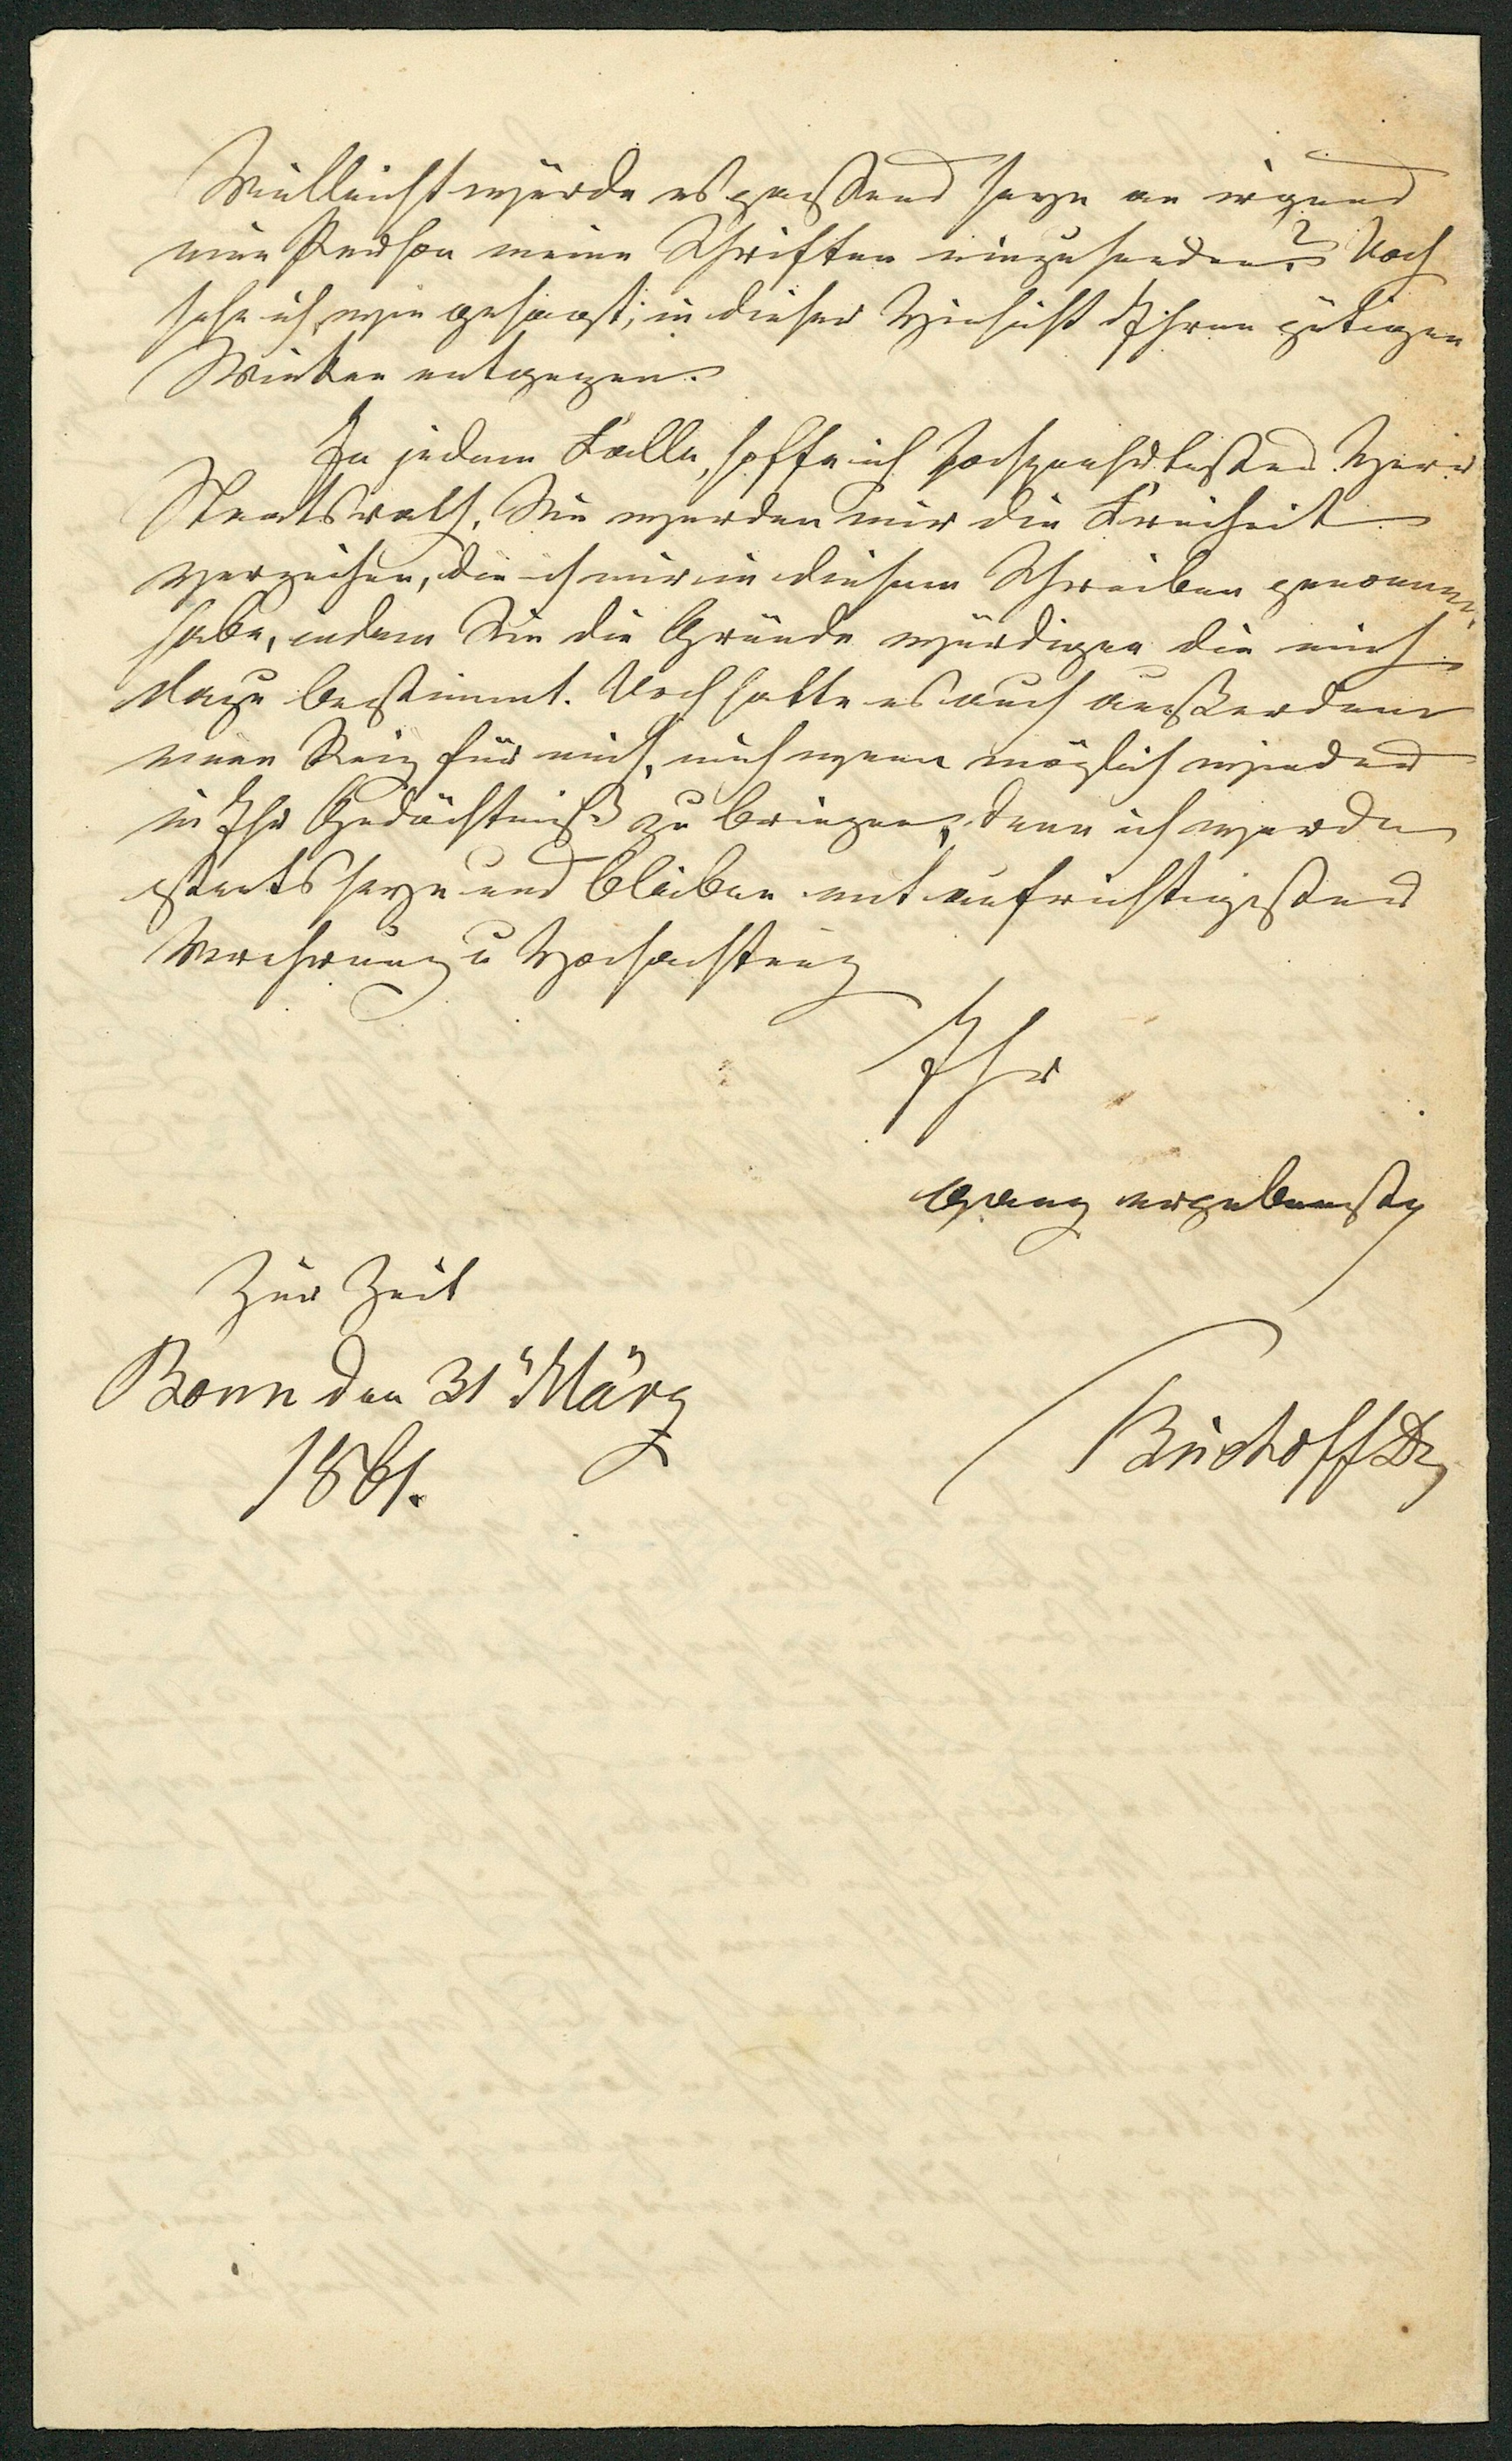 Vielleicht würde es passend seyn an irgend
eine Person meine Schriften einzusenden? Doch
sehe ich, wie gesagt, in dieser Hinsicht Ihren gütigen
Winken entgegen.
In jedem Falle, hoffe ich Herr
Staatsrath, Sie werden mir die Freiheit
verzeihen, die ich mir in diesem Schreiben genommen
habe, indem Sie die Gründe würdigen die mich
dazu bestimmt. Doch hatte es auch außerdem
einen Reiz für mich, mich wenn möglich wieder
in Ihr Gedächtniß zu bringen, denn ich werde
stets seyn und bleiben mit aufrichtigster
Verehrung u Hochachtung
Ihr
Ganz ergebenster
Zur Zeit
Bonn den 31 März
1861.
Bischoff Dr